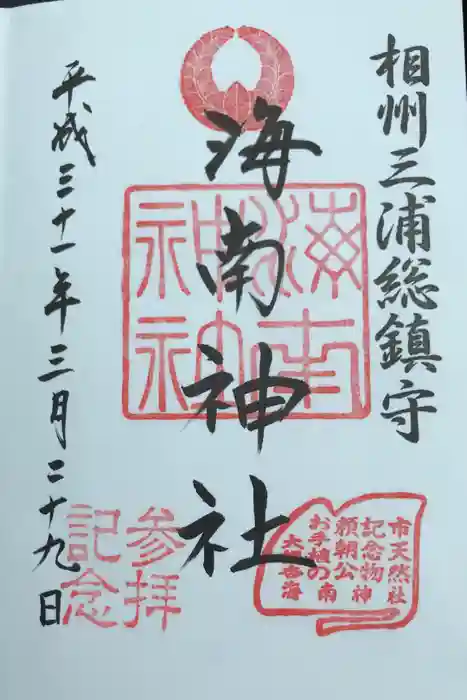 相州三浦総鎮守
海南神社
海南
神社
平成三十一年三月二十九日
参拝
記念
市天然
記念物
頼朝公
お手植の
大銀杏
海南神社